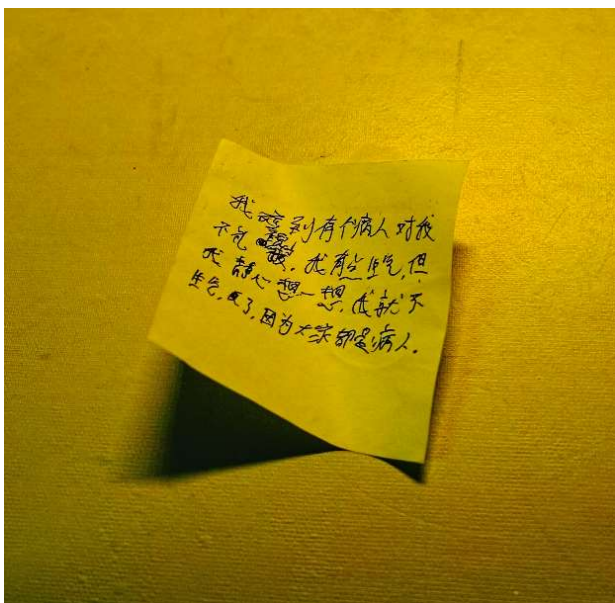 我碰到有个病人对我
不礼貌，我有点生气，但
我静心想一想，我就不
生气，了，因为大家都是病人。